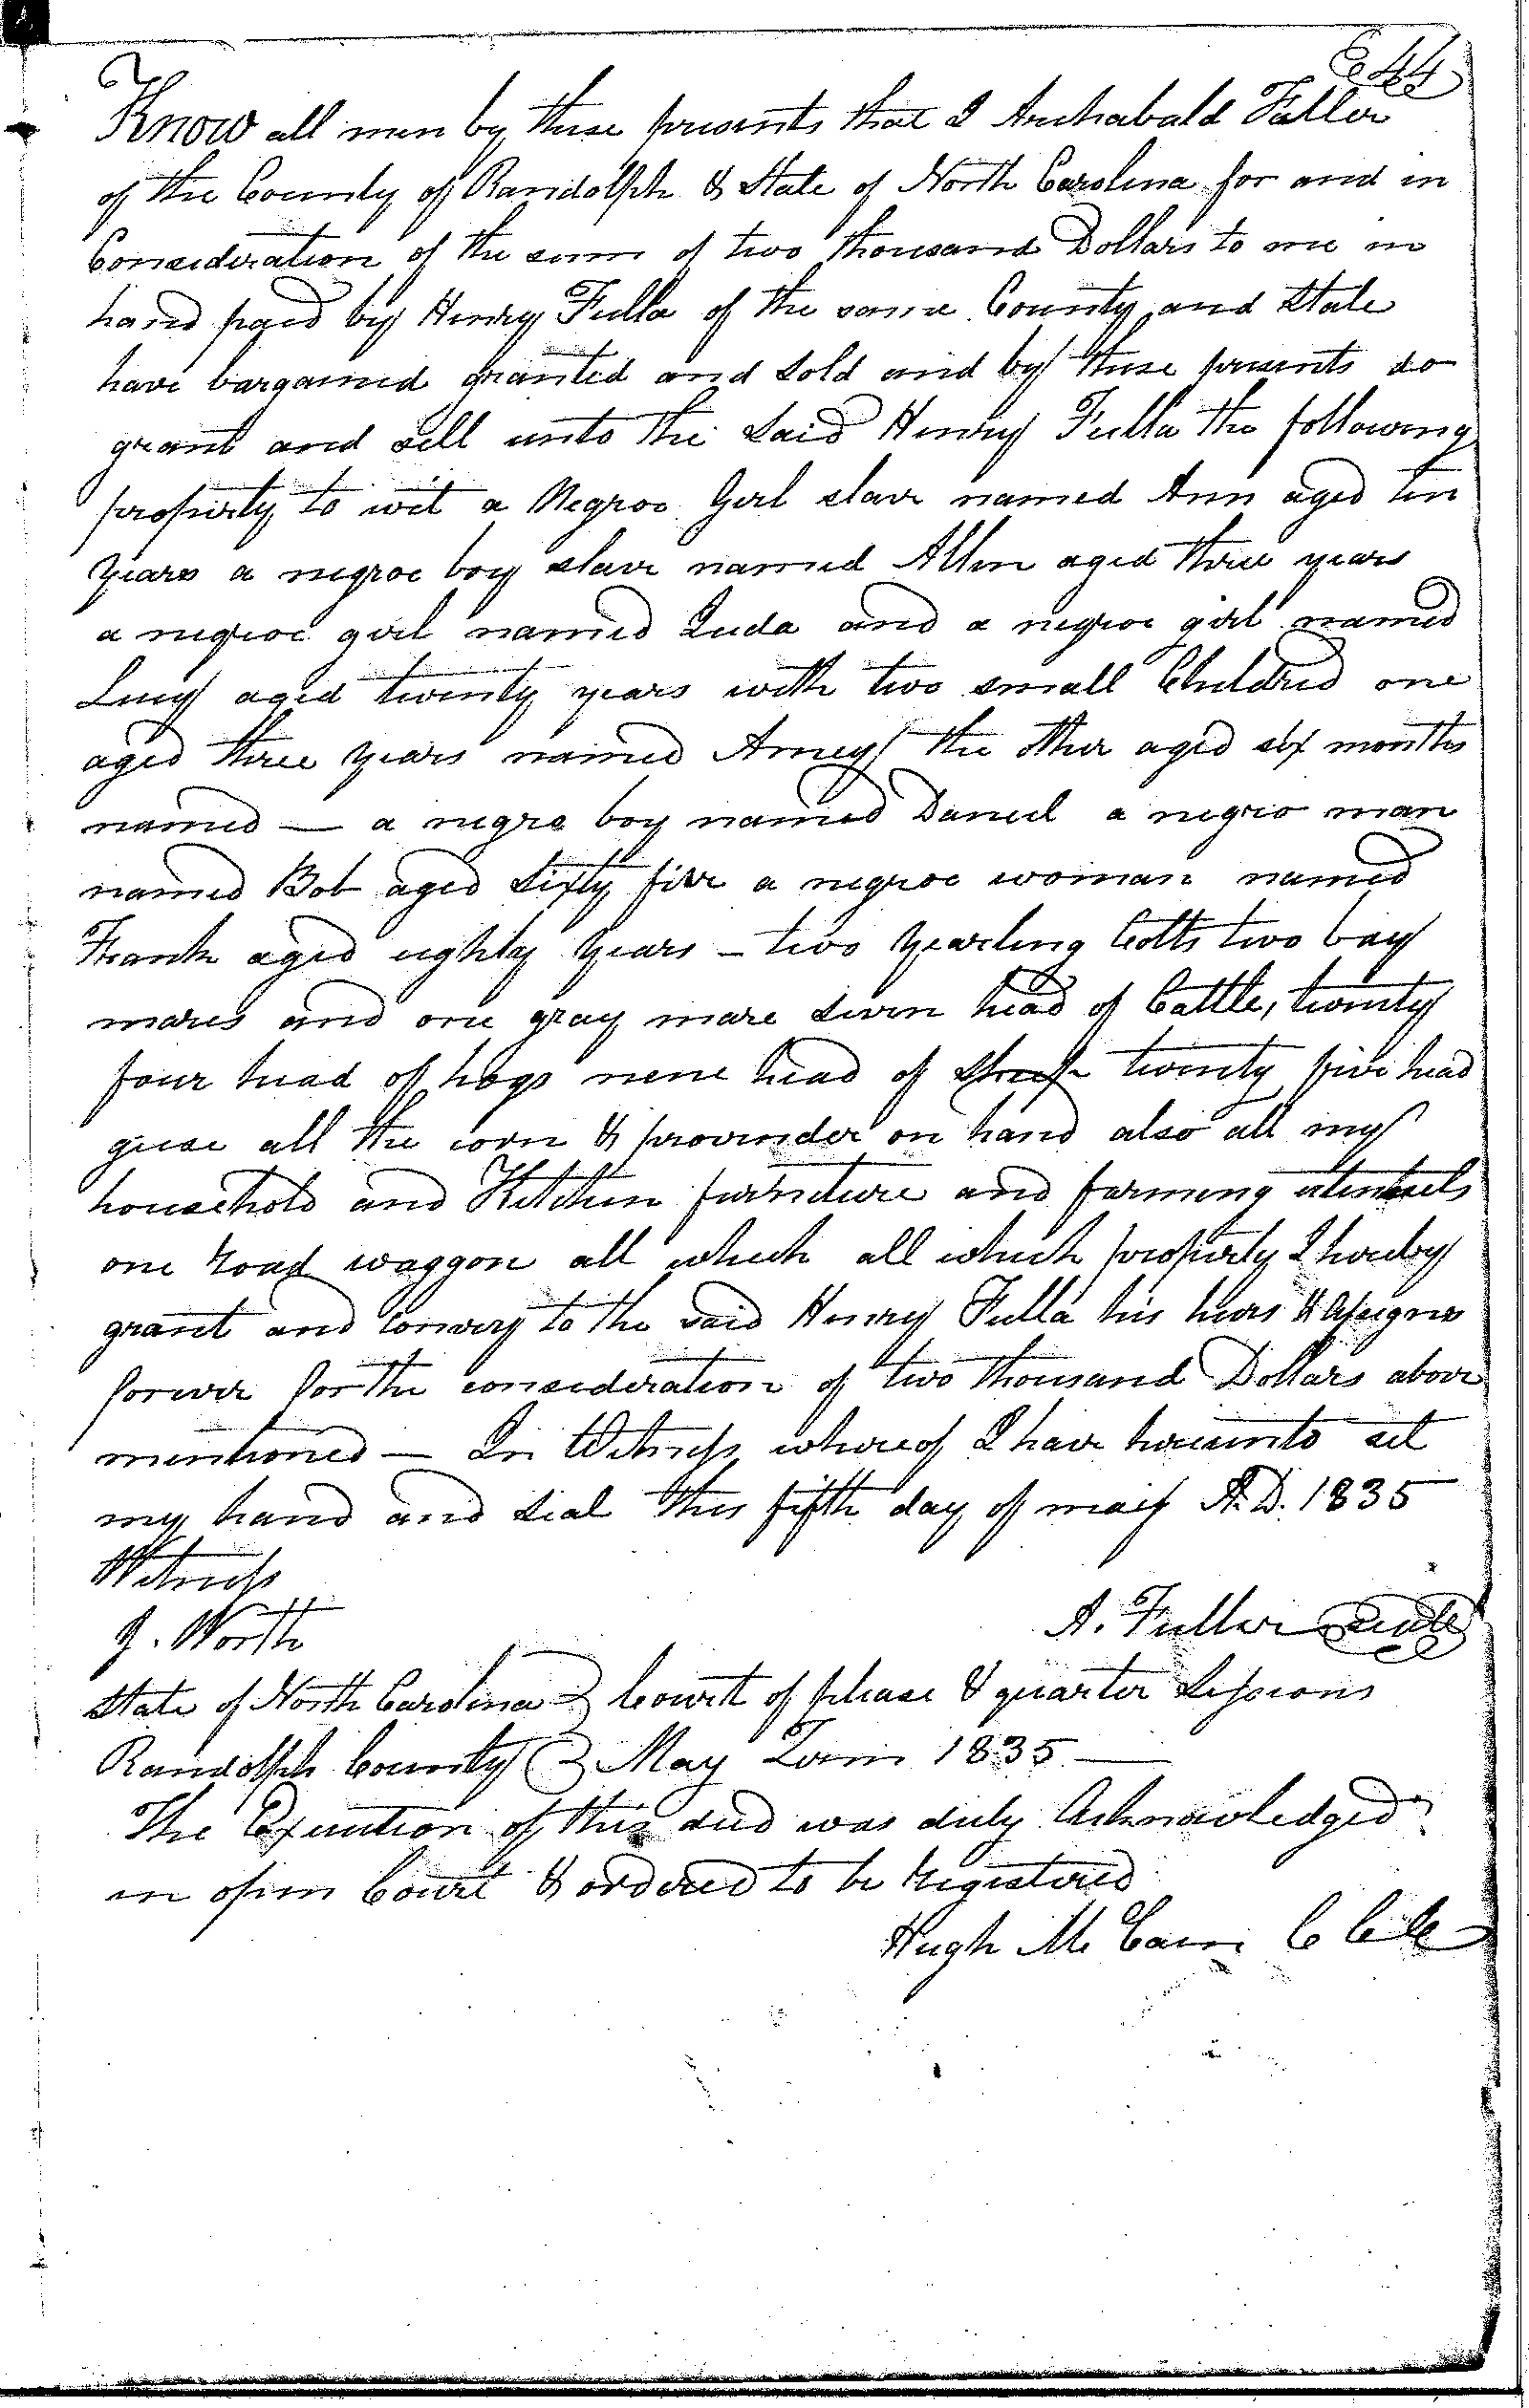 644
Know all men by these presents that I Archabald Fuller
of the County of Randolph & State of North Carolina for and in
Consideration of the sum of two thousand Dollars to me in
hand paid by Henry Fulla of the same County and State
have bargained granted and sold and by these presents do
grant and sell unto the said Henry Fulla the following
property to wit a Negroe Girl slave named Ann aged ten
years a negroe boy slave named Allen aged three years
a negroe girl named and a negroe girl named
Lucy aged twenty years with two small Childred one
aged three years named Amey the other aged six months
named — a negro boy named Daniel a negro man
named Bob aged sixty five a negroe woman named
Frank aged eighty years – two yearling Colts two bay
mares and one gray mare seven head of Cattle, twenty
four head of hogs nene head of Sheep twenty five head
geese all the corn & provender on hand also all my
household and Kitchen furniture and farming utensels
one road waggon all which all which property I hereby
grant and convey to the said Henry Fulla his heirs & assigns
forever for the consideration of two thousand Dollars above
mentioned — In Witness whereof I have hereunto set
my hand and seal this fifth day of may A.D. 1835
Witness
J. Worth
A. Fuller seal
State of North Carolina } Court of please & quarter Sessions
Randolph County } May Term 1835 —
The Execution of this deed was duly Acknowledged
in open Court & ordered to be registered
Hugh Mc Cain C Clk